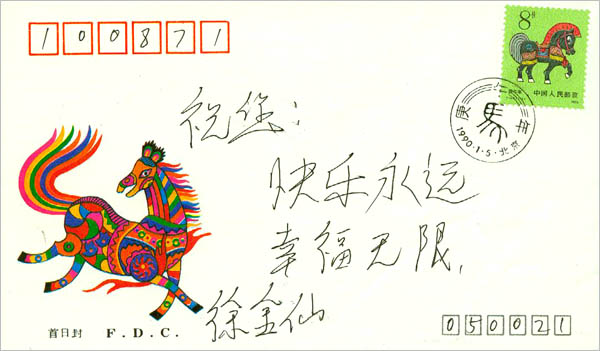 100871
8分
中国人民邮政
庚午年
馬
1990·1·5·北京
祝您：
快乐永远
幸福无限,
徐金仙
首日封 F.D.C.
050021